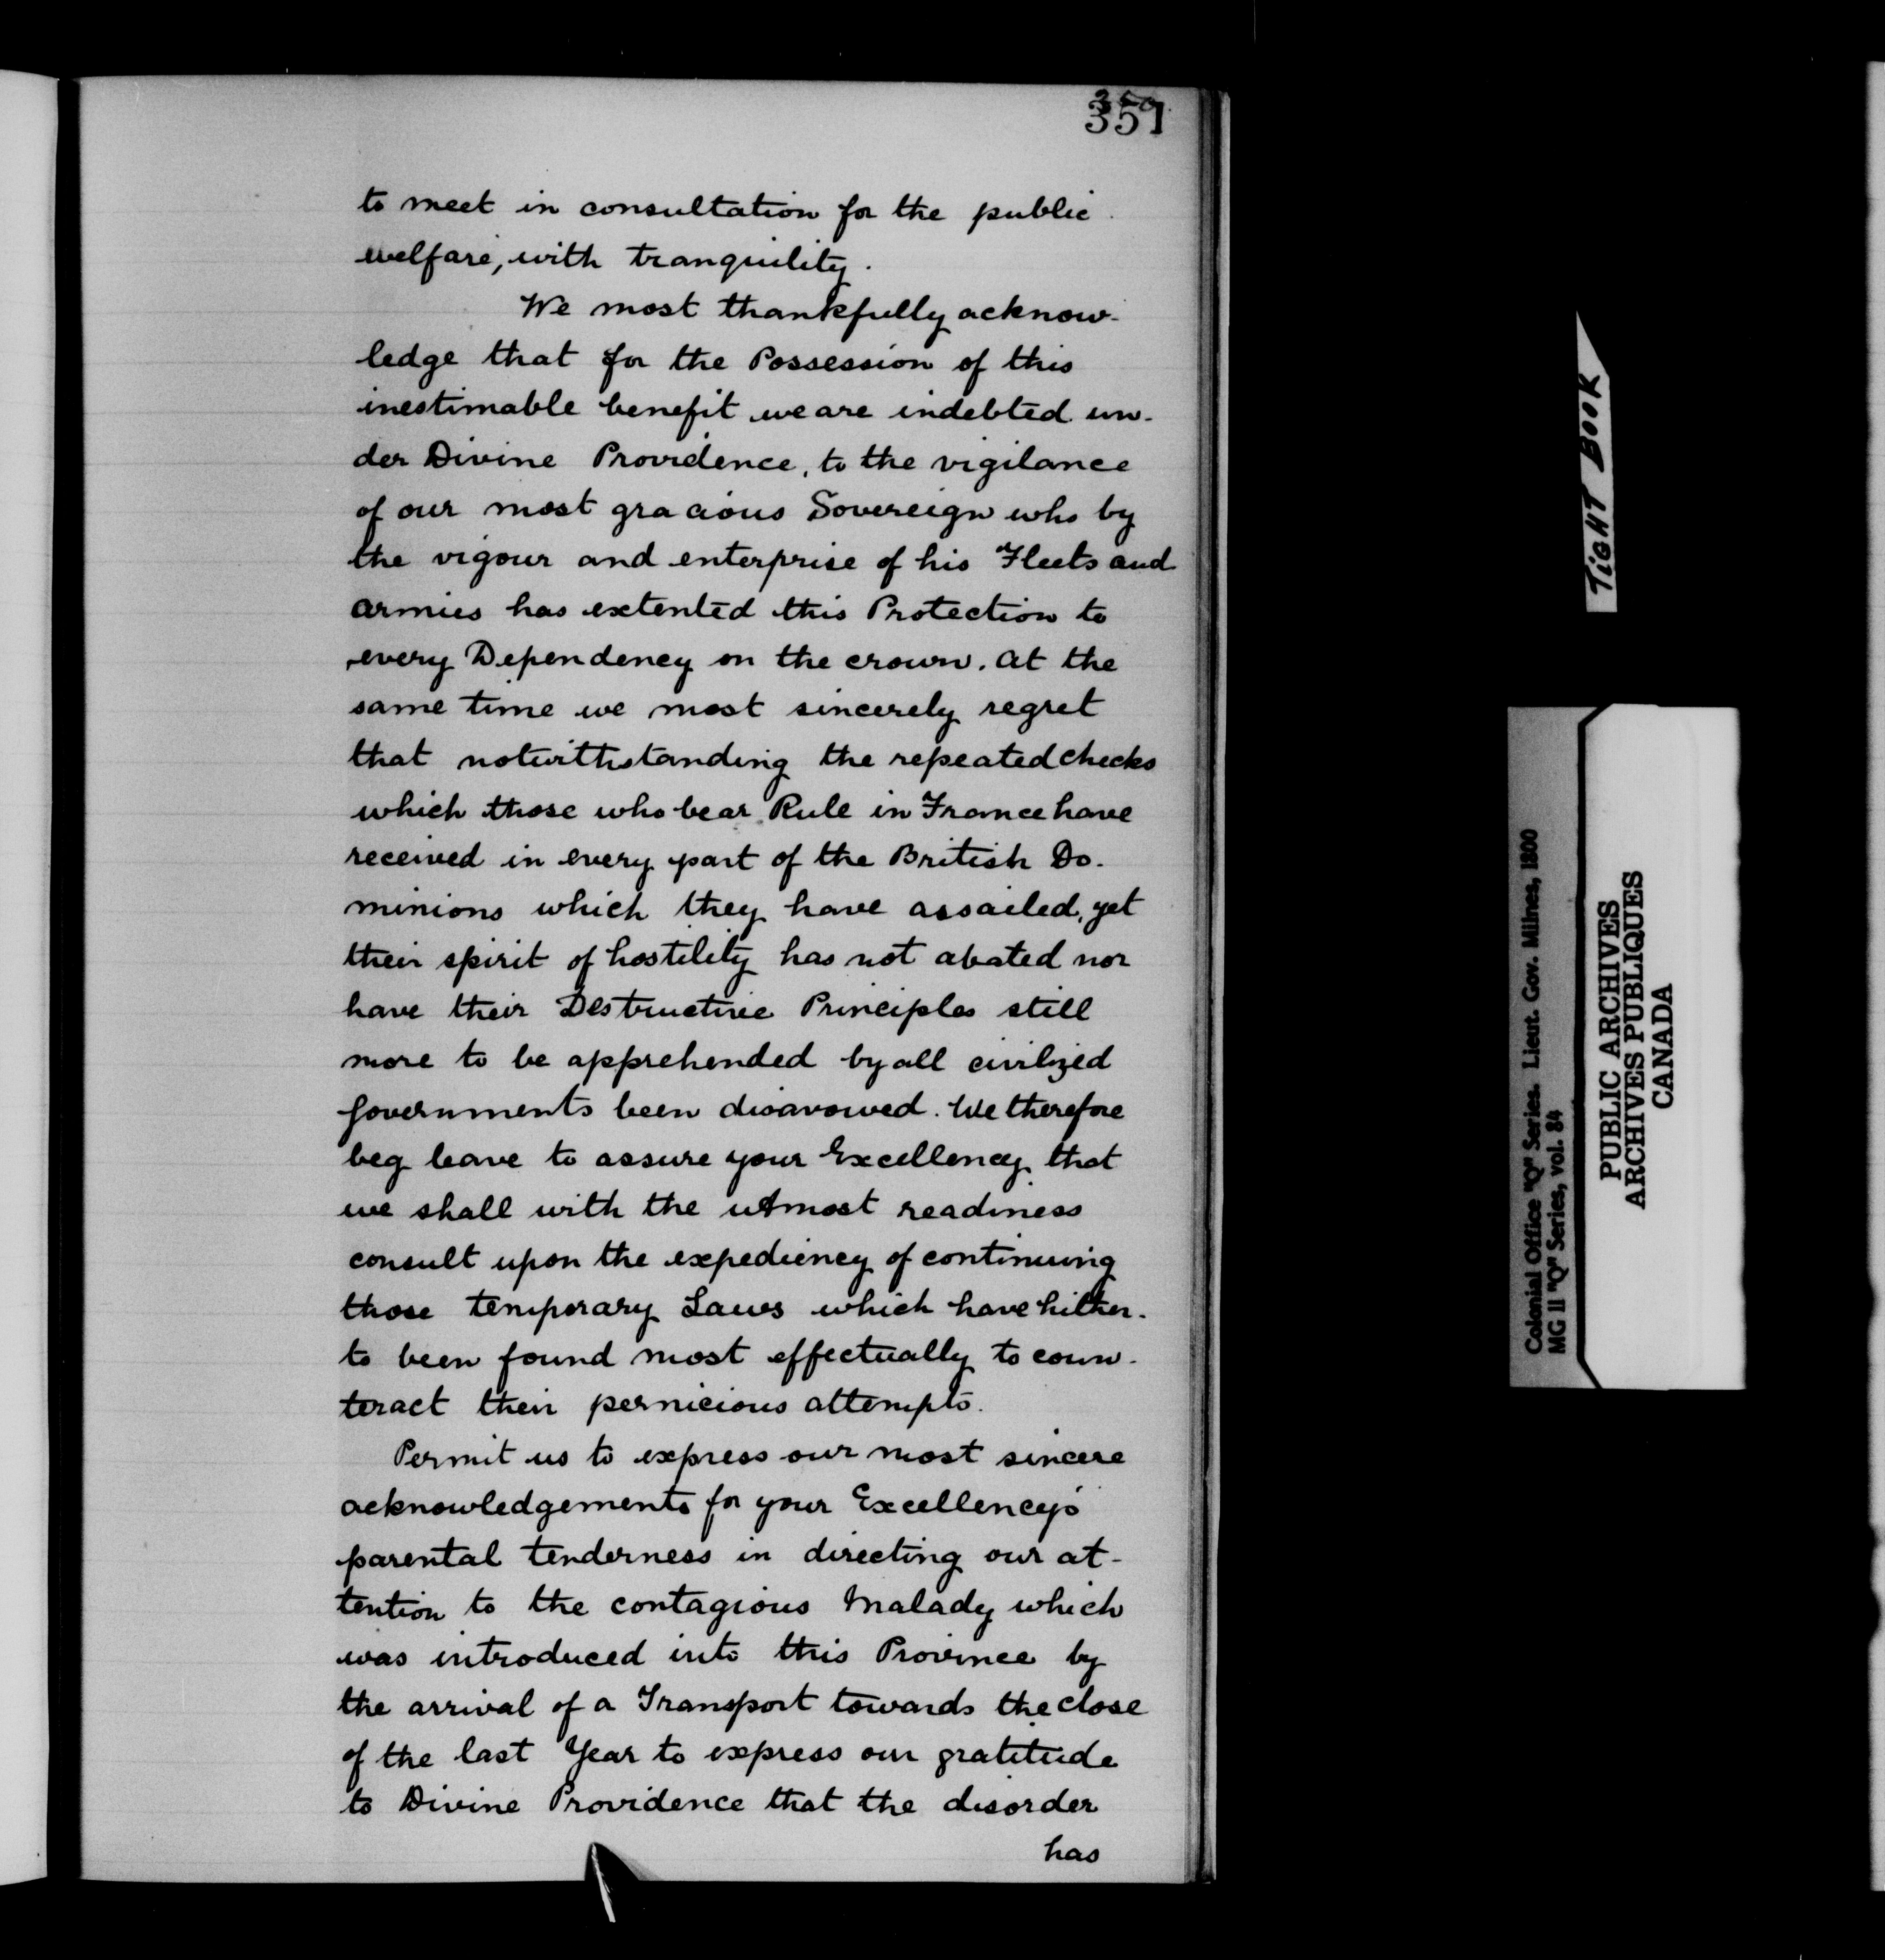 351
to meet in consultation for the public
welfare, with tranquility.
We most thankfully acknow-
ledge that for the Possession of this
inestimable benefit we are indebted un-
der Divine Providence, to the vigilance
of our most gracious Sovereign who by
the vigour and enterprise of his Fleets and
armies has extented this Protection to
every Dependency on the crown. At the
same time we most sincerely regret
that notwithstanding the repeated checks
which those who bear Rule in France have
received in every part of the British Do-
minions which they have assailed, yet
their spirit of hostility has not abated nor
have their Destructive Principles still
more to be apprehended by all civilized
Governments been disavowed. We therefore
beg leave to assure your Excellency that
we shall with the utmost readiness
consult upon the expediency of continuing
those temporary Laws which have hither-
to been found most effectually to coun-
teract their pernicious attempts.
Permit us to express our most sincere
acknowledgements for your Excellency's
parental tenderness in directing our at-
tention to the contagious Malady which
was introduced into this Province by
the arrival of a Transport towards the close
of the last Year to express our gratitude
to Divine Providence that the disorder
has
TIGHT BOOK
Colonial Office "Q" Series. Lieut. Gov. Milnes, 1800
MG 11 "Q" Series, vol. 84
PUBLIC ARCHIVES
ARCHIVES PUBLIQUES
CANADA